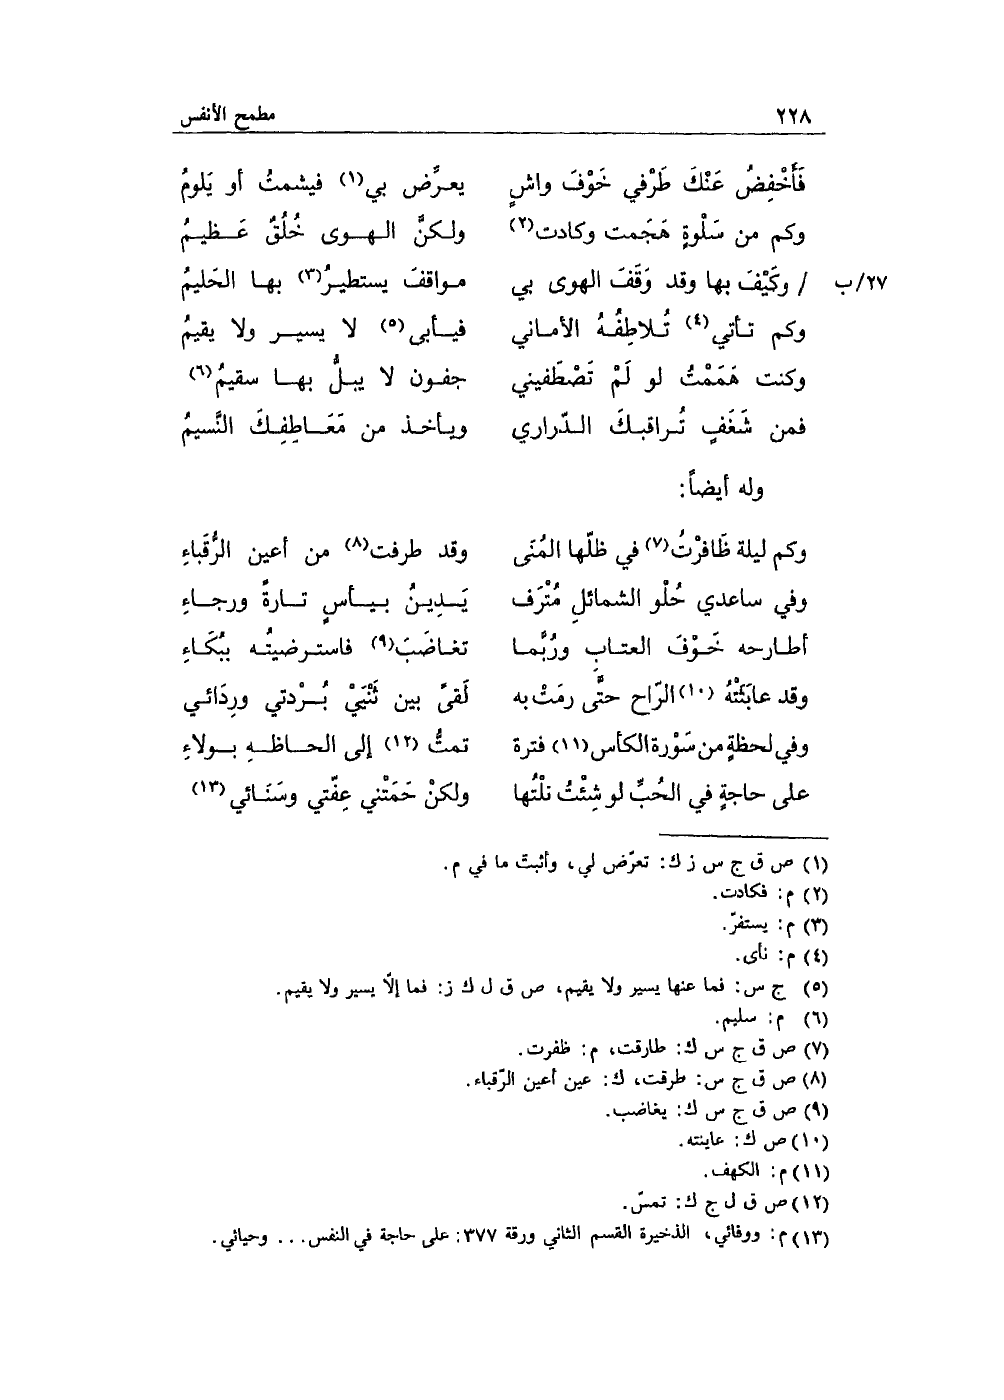 ٢٢٨ مطمح الأنفس
فَأَخْفِضُ عَنْكَ طَرْفي خَوْفَ واشٍ يعرِّض بي(١) فيشمتُ أو يَلومُ
وكم من سَلْوةٍ هَجَمت وكادت(٢) ولكنَّ الهوى خُلُقٌ عَظيمُ
٢٧/ب / وكَيْفَ بها وقد وَقَفَ الهوى بي مواقفَ يستطيرُ(٣) بها الحَليمُ
وكم تأتي(٤) تُلاطِفُهُ الأماني فيأبى(٥) لا يسير ولا يقيمُ
وكنت هَمَمْتُ لو لَمْ تَصْطَفيني جفون لا يبلُّ بها سقيمُ(٦)
فمن شَغَفٍ تُراقبكَ الدّراري ويأخذ من مَعَاطِفِكَ النَّسيمُ
وله أيضاً:
وكم ليلة ظَافرْتُ(٧) في ظلّها المُنَى وقد طرفت(٨) من أعين الرُّقَباءِ
وفي ساعدي حُلْو الشمائلِ مُتْرَف يَدِينُ بيأسٍ تارةً ورجاءِ
أطارحه خَوْفَ العتابِ ورُبَّما تغاضَبَ(٩) فاسترضيتُه ببُكَاءِ
وقد عابَثَتْهُ (١٠)الرّاح حتَّى رمَتْ به لَقىً بين ثَنْيَيْ بُرْدتي ورِدَائي
وفي لحظةٍ من سَوْرة الكأس(١١) فترة تمتُّ (١٢) إلى الحاظهِ بولاءِ
على حاجةٍ في الحُبِّ لو شِئْتُ نلْتُها ولكنْ حَمَتْني عِفّتي وسَنَائي(١٣)
(١) ص ق ج س ز ك: تعرّض لي، وأثبتّ ما في م.
(٢) م: فكادت.
(٣) م: يستفزّ.
(٤) م: نأى.
(٥) ج س: فما عنها يسير ولا يقيم، ص ق ل ك ز: فما إلّا يسير ولا يقيم.
(٦) م: سليم.
(٧) ص ق ج س ك: طارقت، م: ظفرت.
(٨) ص ق ج س: طرقت، ك: عين أعين الرّقباء.
(٩) ص ق ج س ك: يغاضب.
(١٠) ص ك: عاينته.
(١١) م: الكهف.
(١٢) ص ق ل ج ك: تمسّ.
(١٣) م: ووفائي، الذخيرة القسم الثاني ورقة ٣٧٧: على حاجة في النفس... وحيائي.